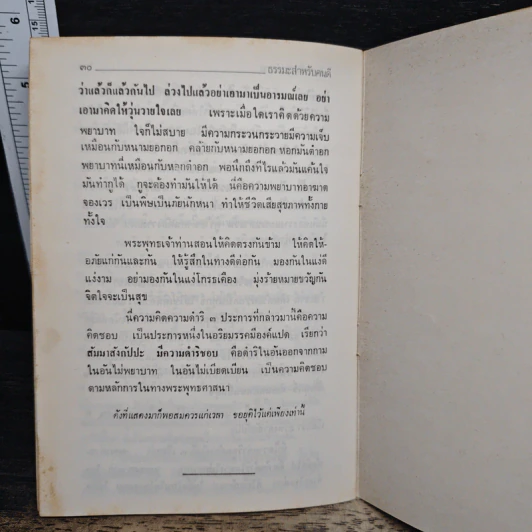 ๓๐ ธรรมะสำหรับคนดี
ว่าแล้วก็แล้วกันไป ล่วงไปแล้วอย่าเอามาเป็นอารมณ์เลย อย่า
เอามาคิดให้วุ่นวายใจเลย เพราะเมื่อใดเราคิดด้วยความ
พยาบาท ใจก็ไม่สบาย มีความกระวนกระวายมีความเจ็บ
เหมือนกับหนามยอกอก คล้ายกับหนามยอกอก หอกมันตำอก
พยาบาทนี่เหมือนกับหอกตำอก พอนึกถึงทีไรแล้วมันแค้นใจ
มันทำกูได้ กูจะต้องทำมันให้ได้ นี่คือความพยาบาทอาฆาต
จองเวร เป็นพิษเป็นภัยนักหนา ทำให้ชีวิตเสียสุขภาพทั้งกาย
ทั้งใจ
พระพุทธเจ้าท่านสอนให้คิดตรงกันข้าม ให้คิดให้-
อภัยแก่กันและกัน ให้รู้สึกในทางดีต่อกัน มองกันในแง่ดี
แง่งาม อย่ามองกันในแง่โกรธเคือง มุ่งร้ายหมายขวัญกัน
จิตใจจะเป็นสุข
นี่ความคิดความดำริ ๓ ประการที่กล่าวมานี่คือความ
คิดชอบ เป็นประการหนึ่งในอริยมรรคมีองค์แปด เรียกว่า
สัมมาสังกัปปะ มีความดำริชอบ คือดำริในอันออกจากกาม
ในอันไม่พยาบาท ในอันไม่เบียดเบียน เป็นความคิดชอบ
ตามหลักการในทางพระพุทธศาสนา
ดังที่แสดงมาก็พอสมควรแก่เวลา ขอยุติไว้แต่เพียงเท่านี้
5
6